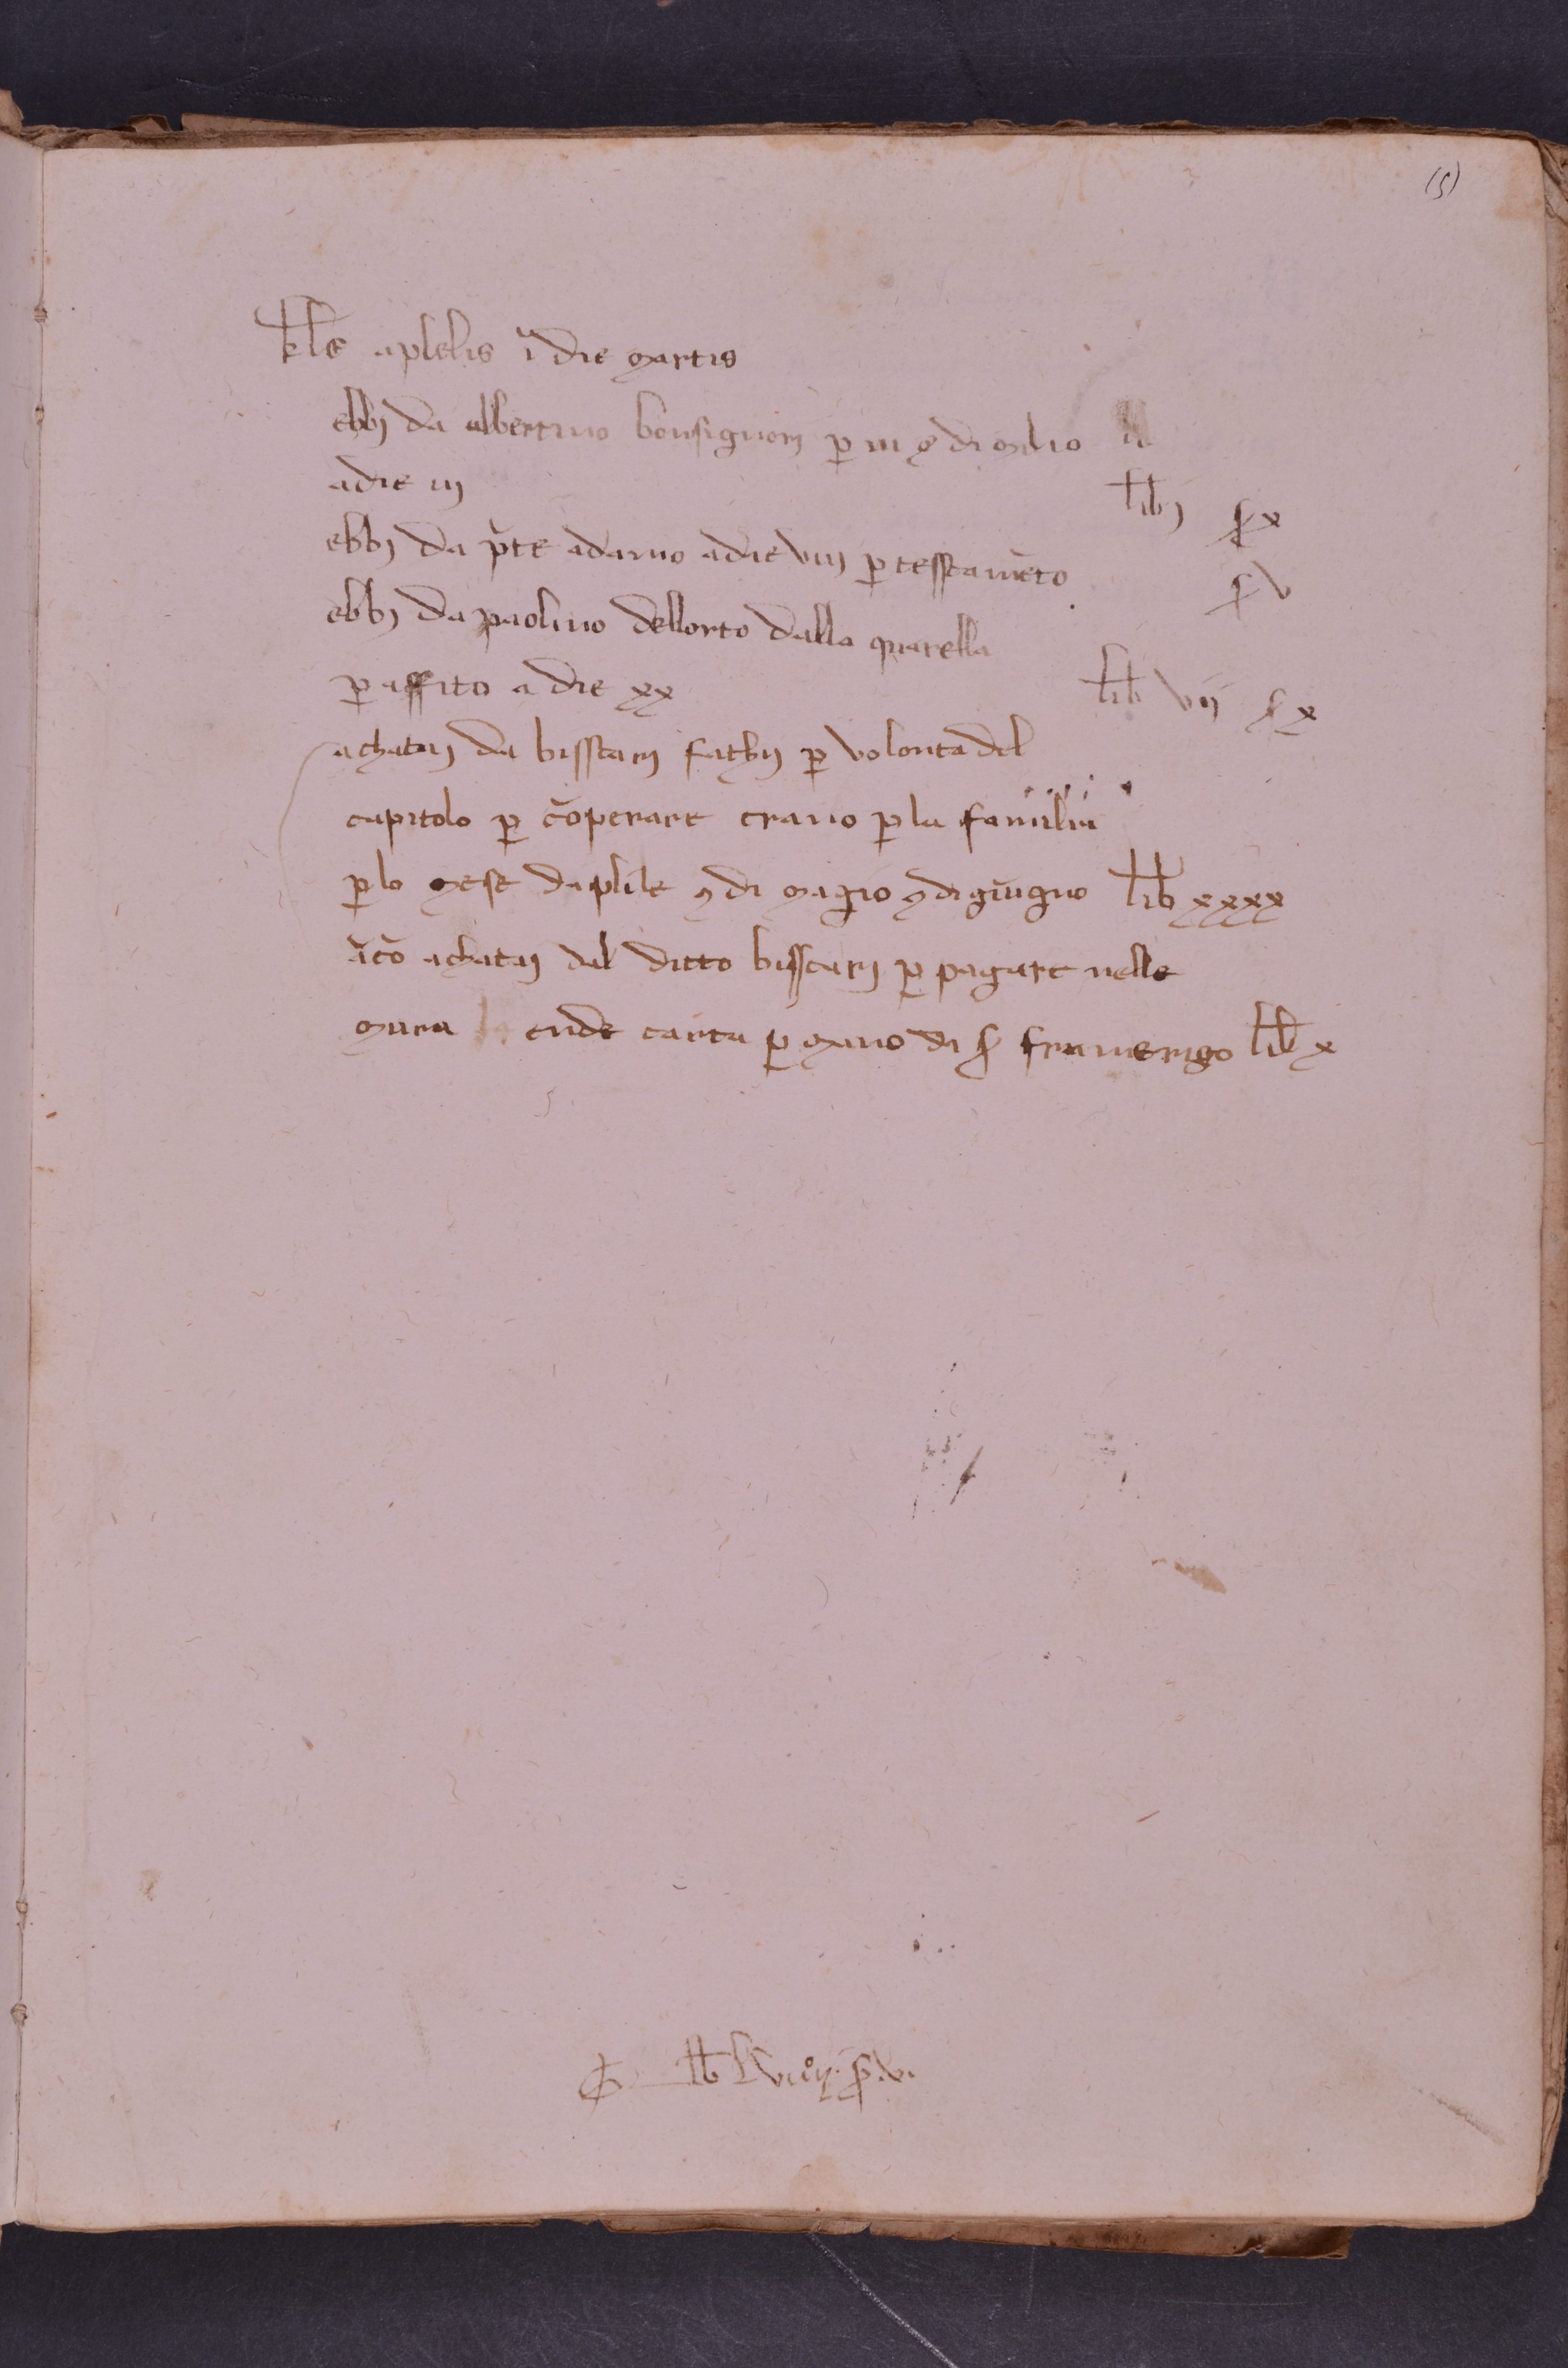 (5)
kl'e aplelis ī die martis
ebbj da albertino bonsignorj p̲ iij q̲ di milio
adie iij libj s x
ebbj da p̄te adamo adie viij p̲ tesstamēto s v
ebbj da paolino dellorto dalla quarella
p̲ affito a die xx lib vij s x
achatai da bisscarj fathij p̲ volonta del
capitolo p̲ cōperare grano p̲ la familia
p̲ lo mese daplile ꝫ di magio ꝫ di giugno lib xxxx
ācō achatai dal ditto bisscarj p̲ pagare nelle
mura ende carta p̲ mano di s framerigo lib x
lb Lviiij. s. v.